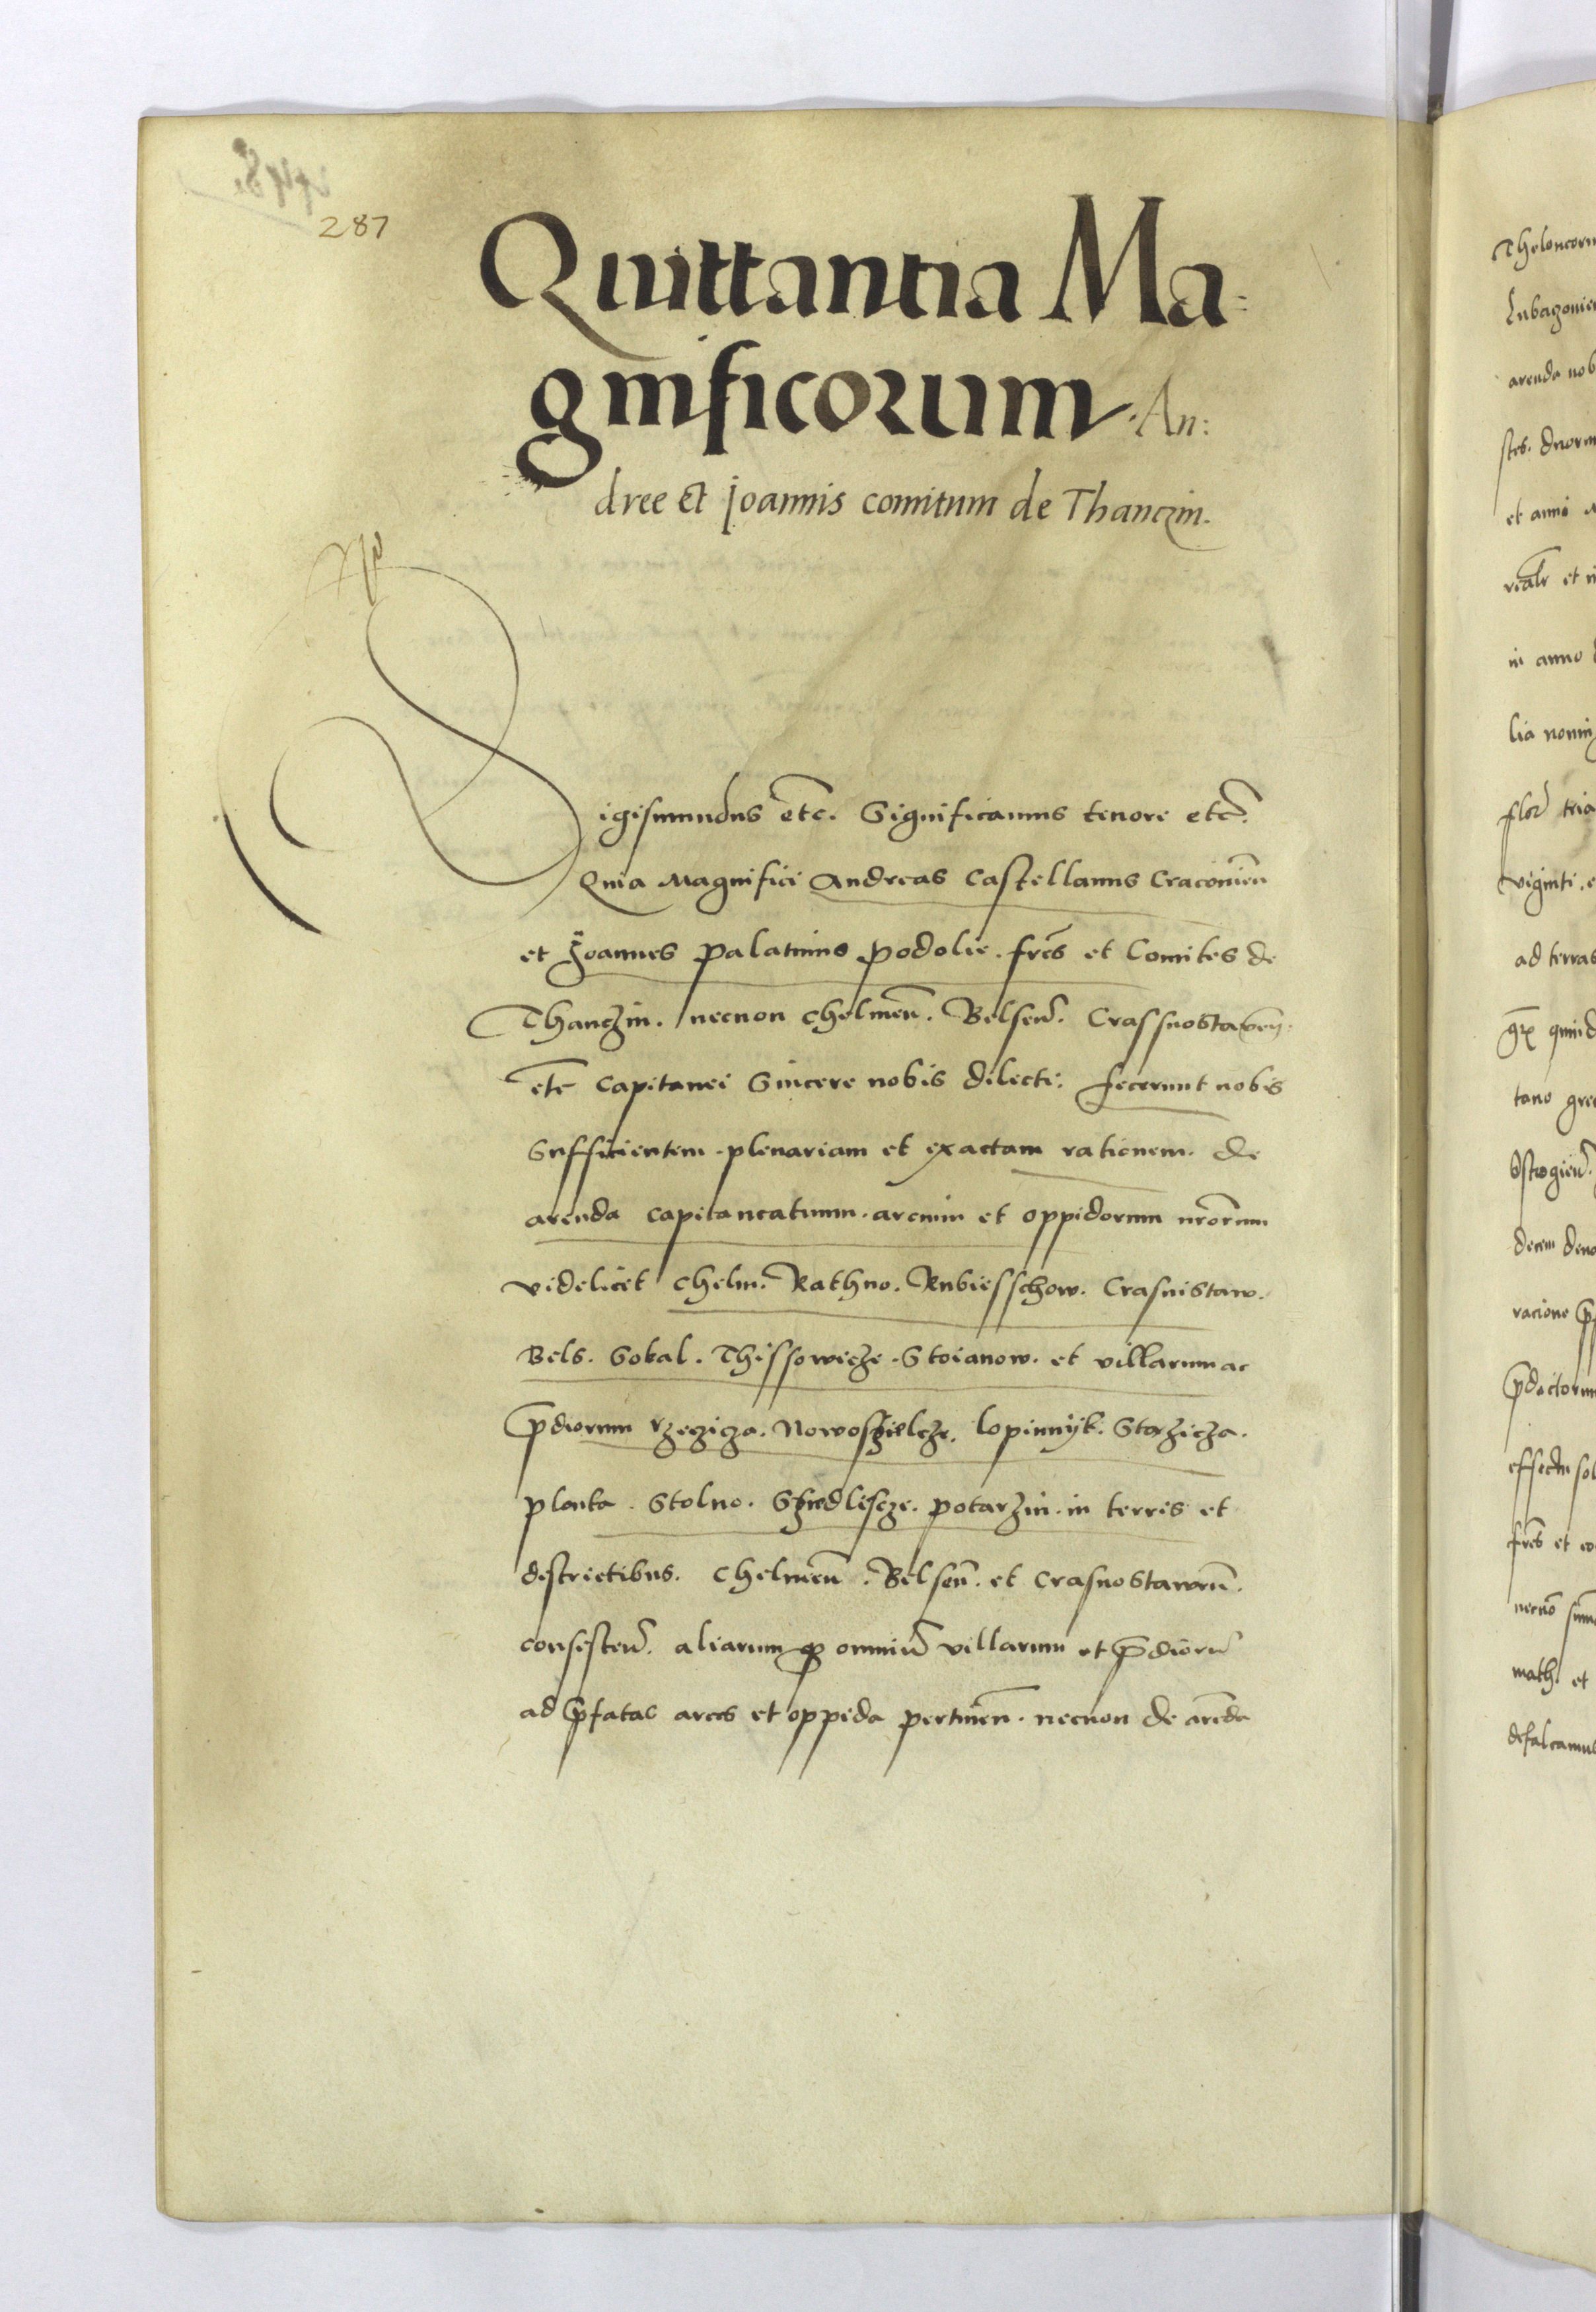 287
Quittantia Ma:
gnificorum. An:
dree et Joannis comitum de Thanczin.
Sigismundus etc. Significamus tenore etc.
Quia Magnifici Andreas Castellanus Cracovień
et Joannes palatinus podolie. frēs et Comites de
Thanczin. necnon chelmeń. Belseń. Crassnostavień.
etc capitanei Sincere nobis dilecti. fecerunt nobis
Sufficientem. plenariam et exactam rationem. de
arenda capitaneatuum. arcium et oppidorum nrorum
videlicet chelm. Rathno. Rubiesschow. Crasnistaw.
Bels. Sokal. Thissowicze. Stoianow. et villarum ac
p̄diorum rzeczicza. Nowoszielcze. lopinnyk. Starzicza.
planta. Stolno. Szedliscze. potarzin. in terris et
districtibus. Chelmeń. Belseń. et Crasnostawień.
consisteń. aliarumq3 omniū villarum et p̄diorū
ad p̄fatas arces et oppida pertineń. necnon de arēda
Theloneorum
arenda nob
et anni
et
in anno
lia nomi
viginti.
ad terras
decem
racione
et
et
defalcamus